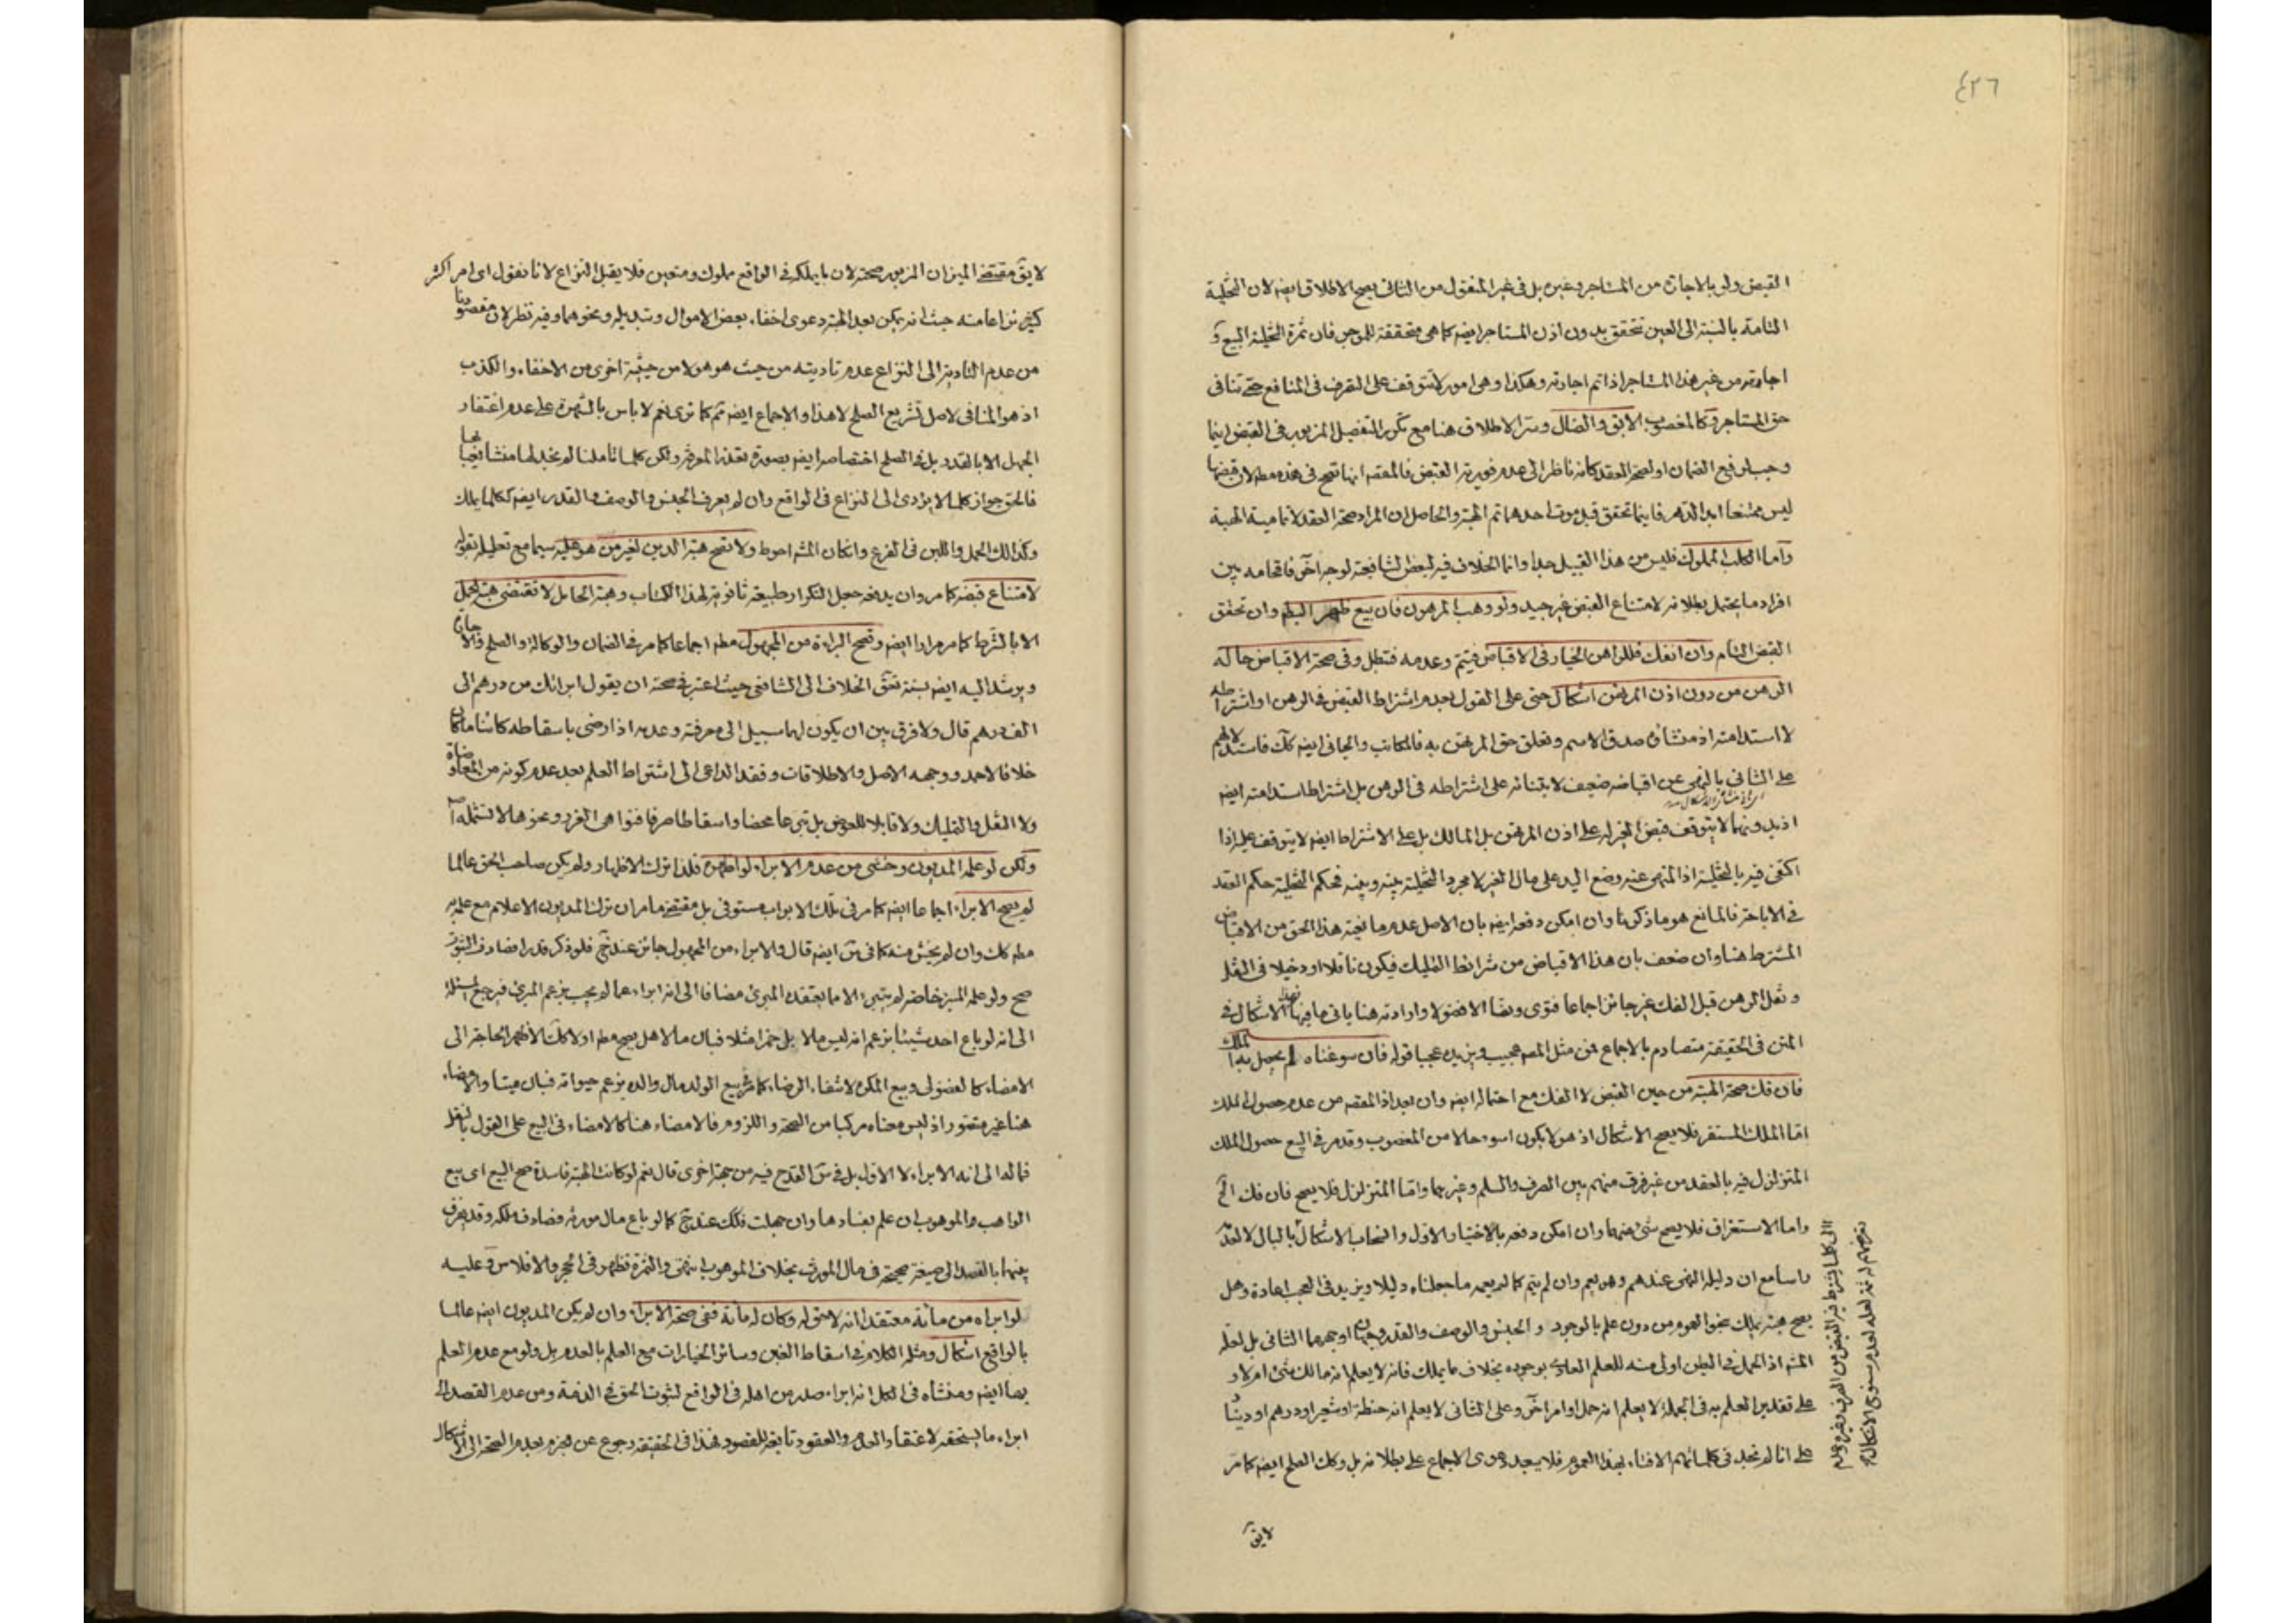 ٤٢٦
القبض ولو بالاجارة من المستاجر وغيره بل فى غير المنقول من الثانى يصح الاطلاق ايضه لان التخلية
التامة بالنسبة الى العين تتحقق بدون اذن المستاجر ايضه كما هى متحققة للموجر فان ثمرة التخلية البيع و
اجارته من غير هذا المستاجر اذا تم اجارته وهكذا وهى امور لا تتوقف على التصرف فى المنافع حتى تنافى
حق المستاجر وكالمغصوب الابق والضال وسر الاطلاق هنا مع تكرر التفصيل المزبور فى القبض اينما
وجب لرفع الضمان او لصحة العقد كانه ناظر الى عدم فورية القبض فالمقصه انها تصح فى هذه مطه لان قبضها
ليس ممتنعا ابد الدهر فاينما تحقق قبل موت احدهما تم الهبة والحاصل ان المراد صحة العقد لا تمامية الهبة
واما الكلب المملوك فليس من هذا القبيل جدا وانما الخلاف فيه لبعض الشافعية لوجه آخر فاقحامه بين
افراد ما يحتمل بطلانه لامتناع القبض غير جيد ولو وهب المرهون فان بيع ظهر البطه وان تحقق
القبض التام وان انفك فللراهن الخيار فى الاقباض فيتم وعدمه فتبطل وفى صحة الاقباض حالة
الرهن من دون اذن المرتهن اشكال حتى على القول بعدم اشتراط القبض فى الرهن او اشتراطه
لا استدامته اذ منشأه صدق الاسم وتعلق حق المرتهن به فالمكاتب والجانى ايضه كك فاستدلالهم
على الثانى بالنهى عن اقباضه ضعيف لابتنائه على اشتراطه فى الرهن بل اشتراط استدامته ايضه
اذ بدونها لا يتوقف قبض الغير له على اذن المرتهن بل المالك بل على الاشتراط ايضه لا يتوقف عليه اذا
اكتفى فيه بالتخلية اذ المنهى عنه وضع اليد على مال الغير لا مجرد التخلية بينه وبينه فحكم التخلية حكم العقد
فى الاباحة فالمانع هو ما ذكرنا وان امكن دفعه ايضه بان الاصل عدم مانعية هذا الحق من الاقباض
المشترط هنا وان ضعف بان هذا الاقباض من شرائط التمليك فيكون ناقلا او دخيلا فى النقل
ونقل الرهن قبل الفك غير جائز اجماعا فتوى ونصا الا فضولا وارادته هنا يابى ما فيها فهذا الاشكال فى
المتن فى الحقيقة متصادم بالاجماع فمن مثل المصه عجيب ويزيده عجبا قوله فان سوغناه لم يحصل به الملك
فان فك صحت الهبة من حين القبض لا الفك مع احتماله ايضه وان بعد اذ المقصه من عدم حصول الملك
اما الملك المستقر فلا يصح الاشكال اذ هو لا يكون اسوء حالا من المغصوب وقد مر فى البيع حصول الملك
المتزلزل فيه بالعقد من غير فرق منهم بين الصرف والسلم وغيرهما واما المتزلزل فلا يصح فان فك الخ
واما الاستغراق فلا يصح شئ منهما وان امكن دفعه بالاختيار والاول وانسحاب الاشكال بالبال لا لعدّ
راسا مع ان دليله النهى عندهم وهو يعم وان لم يتم كما لم يعمه ما جعلناه دليلا ويزيد فى العجب اعادة وهل
يصح هبة ما يملك بنحو العموم من دون علم بالوجود و الجنس والوصف والقدر وجهان اوجههما الثانى بل لعله
المشه اذ الحمل فى البطن اولى منه للعلم العادى بوجوده بخلاف ما يملك فانه لا يعلم انه مالك شئ ام لا و
على تقدير العلم به فى الجملة لا يعلم انه حمل او امر اخر وعلى الثانى لا يعلم انه حنطة او شعير او درهم او دينار
على انا لم نجد فى كلماتهم الافتاء بهذا العموم فلا يبعد دعوى الاجماع على بطلانه بل وكك الصلح ايضه كما مر
لا يقه
لا يقه مقتضى الميزان المزبور صحته لان ما يملكه فى الواقع مملوك ومتعين فلا يقبل النزاع لانا نقول اى امر اكثر
كثير نزاعا منه حيث انه يمكن بعد الهبة دعوى اخفاء بعض الاموال وتبديله ونحوهما وفيه نظر لان مقصودنا
من عدم التادية الى النزاع عدم تاديته من حيث هو هو لا من حيثية اخرى من الاخفاء والكذب
اذ هو المنافى لاصل تشريع الصلح لا هذا والاجماع ايضه ثم كما ترى نعم لا باس بالشهرة على عدم اغتفار
الجهل الا بالقدر بل فى الصلح اختصاصه ايضه بصورة تعذر المعرفة ولكن كلما تاملنا لم نجد لها منشأ يعبأ بها
فالحق جواز كلما لا يؤدى الى النزاع فى الواقع وان لم يعرف الجنس والوصف والقدر ايضه ككلما يملك
وكذلك الحمل واللبن فى الضرع وان كان المشه احوط ولا تصح هبة الدين لغير من هو عليه سيما مع تعليله بقوله
لامتناع قبضه كما مر وان يدفعه جعل التكرار طبيعة ثانوية لهذا الكتاب وهبة الحامل لا تقتضى هبة الحمل
الا بالشرط كما مر مرارا ايضه وتصح البراءة من المجهول مطه اجماعا كما مر فى الضمان والوكالة والصلح والاجارة
ويرشد اليه ايضه نسبة تفق الخلاف الى الشافعى حيث اعتبر فى صحته ان يقول ابرأتك من درهم الى
الف درهم قال ولا فرق بين ان يكون لهما سبيل الى معرفته وعدمه اذا رضى باسقاطه كائنا ما كان
خلافا لاحمد ووجهه الاصل والاطلاقات وفقد الداعى الى اشتراط العلم بعد عدم كونه من المعاوضات
ولا النقل والتمليك ولا قابلا للعوض بل تبرعا محضا واسقاطا صرفا فنواهى الغرر ونحوها لا تشمله اصه
ولكن لو علمه المديون وخشى من عدم الابراء لو اظهره فلذا ترك الاظهار ولم يكن صاحب الحق عالما
لم يصح الابراء اجماعا ايضه كما مر فى تلك الابواب مستوفى بل مقتضى ما مر ان ترك المديون الاعلام مع علمه به
مطه كك وان لم يخش منه كما فى س ايضه قال والابراء من المجهول جائز عندنا فلو ذكر قدرا فصادف الثبوت
صح ولو علمه المبرء خاصة لم يبرء الا ما يعتقده المبرئ مضافا الى انه ابراء عما لم يجب بزعم المبرئ فيرجع المسئلة
الى انه لو باع احد شيئا بزعم انه ليس مالا بل خمرا مثلا فبان مالا هل يصح مطه او لا كك الاظهر الحاجة الى
الامضاء كالفضولى وبيع المكره لانتفاء الرضاء كما فى بيع الولد مال والده بزعم حيوته فبان ميتا والامضاء
هنا غير متصور اذ ليس معناه مركبا من الصحة واللزوم فالامضاء هنا كالامضاء فى البيع على القول بالنقل
فماله الى انه الابراء لا الاول بل فى س القدح فيه من جهة اخرى قال نعم لو كانت الهبة فاسدة صح البيع اى بيع
الواهب والموهوب ان علم بفسادها وان جهلت فكك عندنا كما لو باع مال مورثه فصادف ملكه وقد يفرق
بينهما بالقصد الى صيغة صحيحة فى مال المورث بخلاف الموهوب انتهى والثمرة تظهر فى الحجر والافلاس وعليه
لو ابراه من مائة معتقدا انه لا حق له وكان له مائة ففى صحة الابراء وان لم يكن المديون ايضه عالما
بالواقع اشكال ومثله الكلام فى اسقاط الغبن وسائر الخيارات مع العلم بالعدم بل ولو مع عدم العلم
بها ايضه ومنشأه فى الكل انه ابراء صدر من اهله فى الواقع لثبوت الحق فى الذمة ومن عدم القصد الى
ابراء ما يستحقه لاعتقاد العدم والعقود تابعة للقصود فهذا فى الحقيقة رجوع عن الجزم بعدم الصحة الى الاشكال